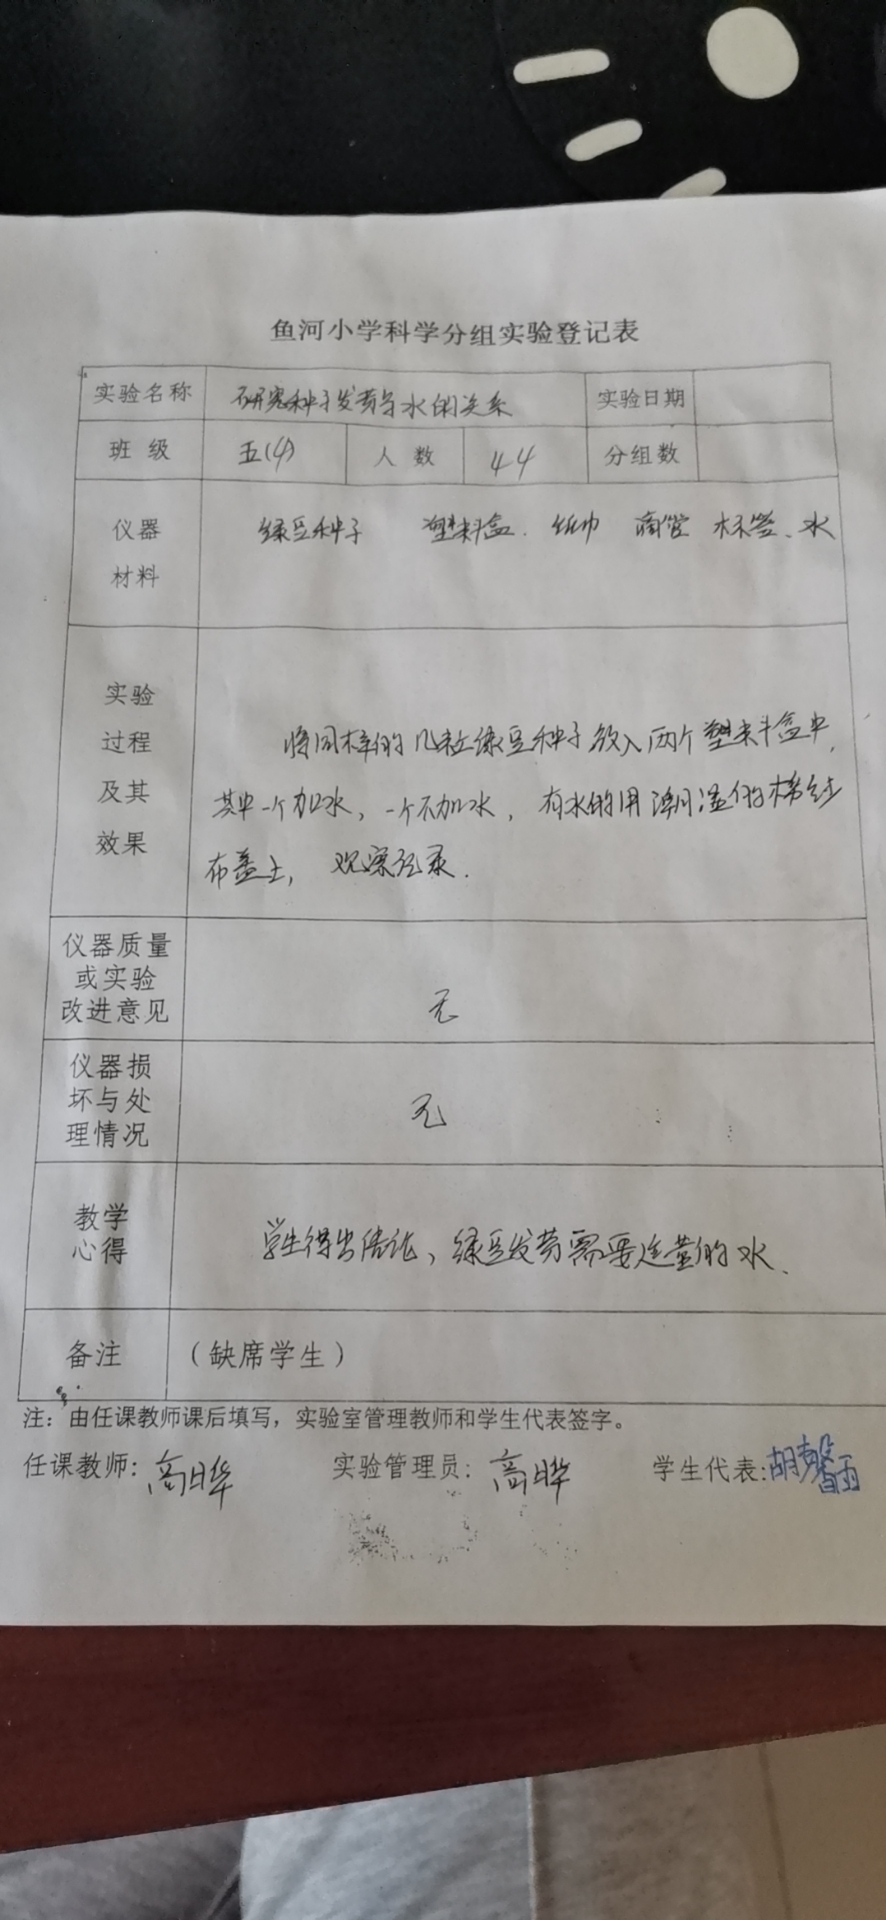 鱼河小学科学分组实验登记表
实验名称 研究种子发芽与水的关系 实验日期
班 级 五(4) 人 数 44 分组数
仪器 绿豆种子 塑料盒. 纸巾 滴管 标签、水
材料
实验
过程 将同样的几粒绿豆种子放入两个塑料盒中,
及其 其中一个加水, 一个不加水, 有水的用潮湿的棉纱
效果 布盖上, 观察记录.
仪器质量
或实验
改进意见 无
仪器损
坏与处 无
理情况
教学
心得 学生得出结论、绿豆发芽需要适量的水、
备注 (缺席学生)
注: 由任课教师课后填写, 实验室管理教师和学生代表签字。
任课教师: 高晔 实验管理员: 高晔 学生代表: 胡馨雨